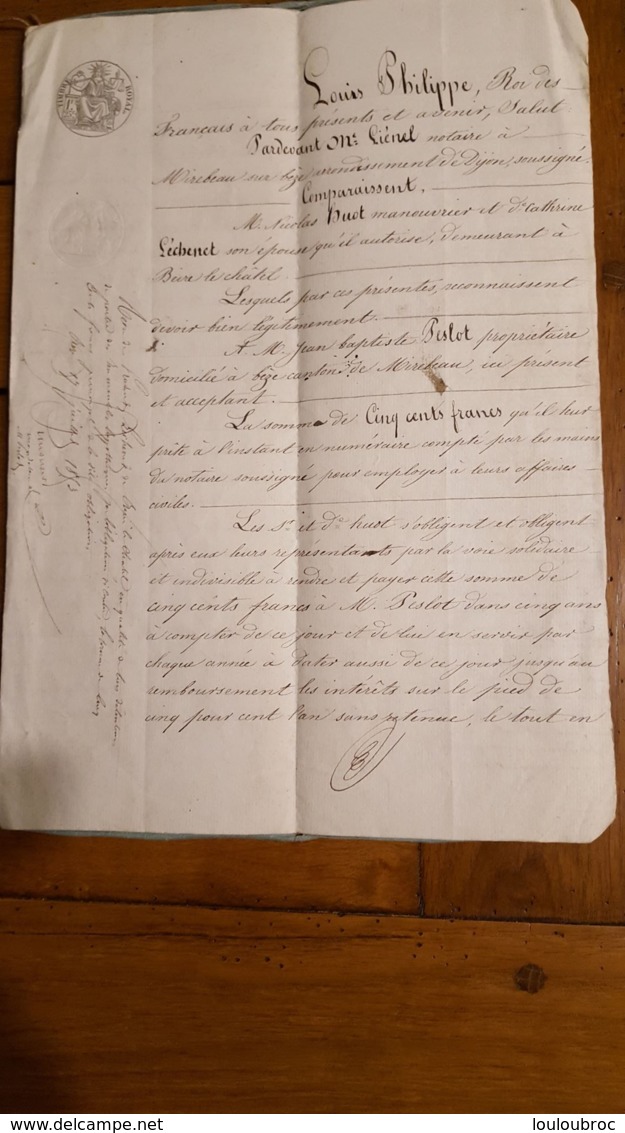 TIMBRE ROYAL
Louis Philippe, Roi des
Français à tous présents et avenir, Salut.
Pardevant Me Liénel notaire à
Mirebeau sur bèze arrondissement de Dijon, soussigné.
Comparaissent,
M. Nicolas Huot manouvrier et De Cathrine
Léchenet son épouse qu'il autorise, demeurant à
Beire le châtel.
Lesquels par ces présentes, reconnaissent
devoir bien légitimement.
A M. Jean baptiste Peslot propriétaire
domicilié à bèze canton de Mirebeau, ici présent
et acceptant.
La somme de Cinq cents francs qu'il leur
prête à l'instant en numéraire compté par les mains
du notaire soussigné pour employer à leurs affaires
civiles.
Les Sr. et De huot s'obligent et obligent
après eux leurs représentants par la voie solidaire
et indivisible à rendre et payer cette somme de
cinq cents francs à M. Peslot dans cinq ans
à compter de ce jour et de lui en servir par
chaque année à dater aussi de ce jour jusqu'au
remboursement les intérêts sur le pied de
cinq pour cent l'an sans retenue, le tout en
Delcampe.net
louloubroc